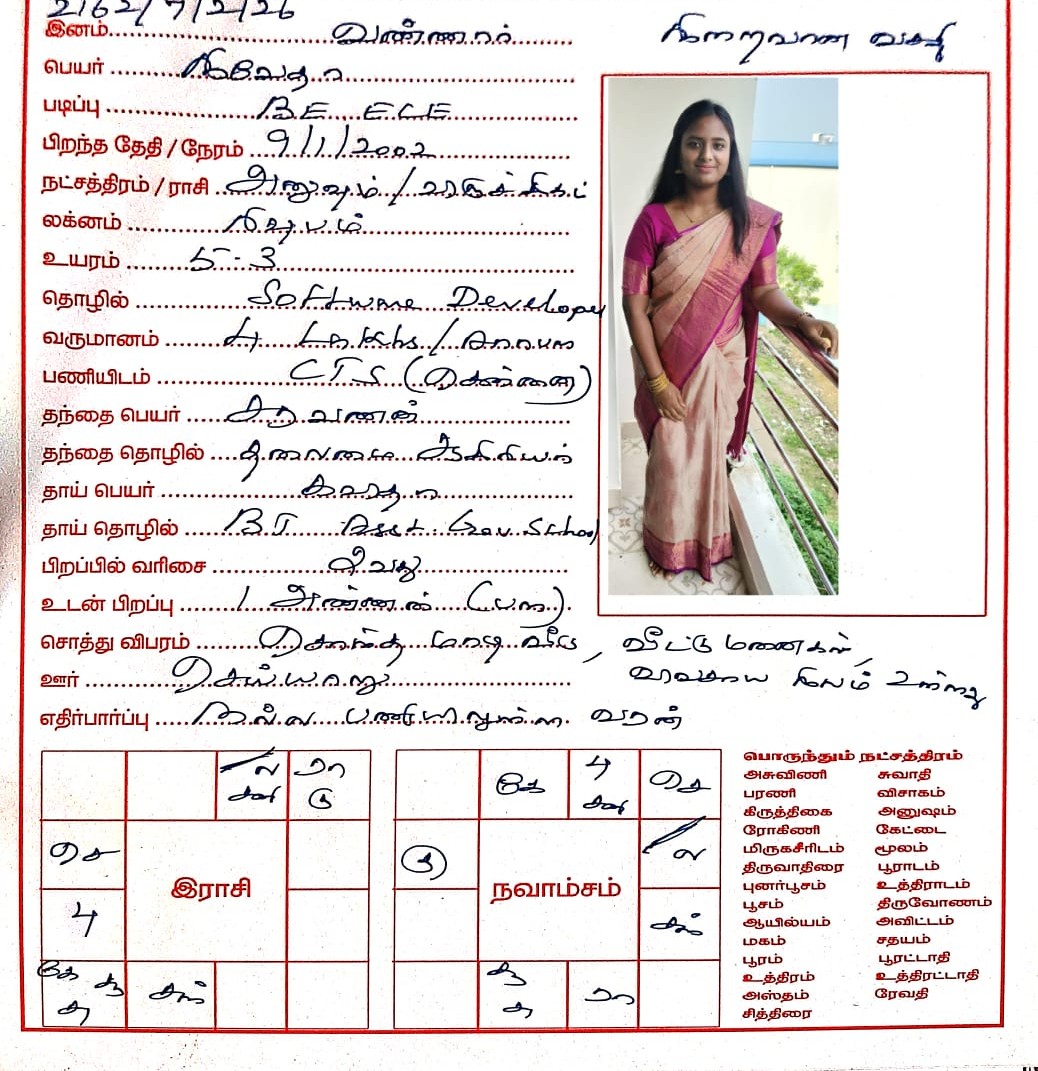 2162/7/2/26
இனம் வண்ணார்
பெயர் நிவேதா
படிப்பு BE ECE
பிறந்த தேதி / நேரம் 9/1/2002
நட்சத்திரம் / ராசி அனுஷம் / விருச்சிகம்
லக்னம் ரிஷபம்
உயரம் 5-3
தொழில் Software Developer
வருமானம் 4 Lakhs / Annum
பணியிடம் CTS (சென்னை)
தந்தை பெயர் சரவணன்
தந்தை தொழில் தலைமை ஆசிரியர்
தாய் பெயர்
தாய் தொழில் B.T. Asst. Gov. School
பிறப்பில் வரிசை 2 வது
உடன் பிறப்பு 1 அண்ணன்
சொத்து விபரம் சொந்த மாடி வீடு, வீட்டு மனைகள்,
விவசாய நிலம் உள்ளது
ஊர் செய்யாறு
எதிர்பார்ப்பு நல்ல பணியிலுள்ள வரன்
ல சனி
ரா கு
செ
பு
கே சூ சு
சந்
இராசி
கே
பு சனி
செ
கு
ல
சந்
சூ சு
ரா
நவாம்சம்
பொருந்தும் நட்சத்திரம்
அசுவிணி சுவாதி
பரணி விசாகம்
கிருத்திகை அனுஷம்
ரோகிணி கேட்டை
மிருகசீரிடம் மூலம்
திருவாதிரை பூராடம்
புனர்பூசம் உத்திராடம்
பூசம் திருவோணம்
ஆயில்யம் அவிட்டம்
மகம் சதயம்
பூரம் பூரட்டாதி
உத்திரம் உத்திரட்டாதி
அஸ்தம் ரேவதி
சித்திரை